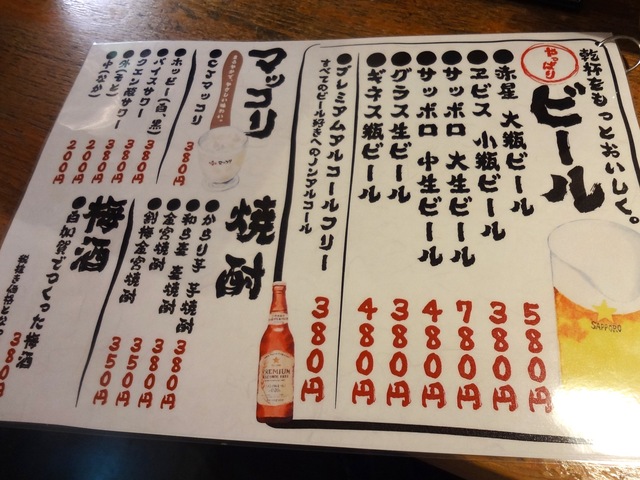 乾杯をもっとおいしく。
やっぱり
ビール
●赤星 大瓶ビール 580円
●ヱビス 小瓶ビール 380円
●サッポロ 大生ビール 780円
●サッポロ 中生ビール 480円
●グラス生ビール 380円
●ギネス瓶ビール 480円
●プレミアムアルコールフリー 380円
すべてのビール好きへのノンアルコール
SAPPORO
PREMIUM
マッコリ
●CJマッコリ 380円
●ホッピー(白、黒) 380円
●バイスサワー 380円
●クエン酸サワー 380円
●外(そと) 200円
●中(なか) 200円
焼酎
●からり芋 芋焼酎 380円
●和ら麦 麦焼酎 380円
●金宮焼酎 350円
●割梅金宮焼酎 350円
梅酒
●百加賀でつくった梅酒
380円